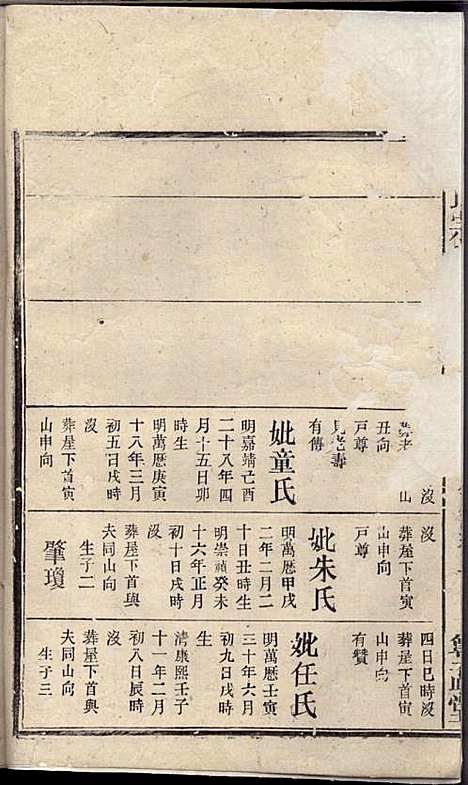 沒
山
丑向
戶尊
見老壽
有傳
妣童氏
明嘉靖己酉
二十八年四
月十五日卯
時生
明萬曆庚寅
十八年三月
初五日戌時
沒
葬屋下首寅
山申向
沒
葬屋下首寅
山申向
戶尊
妣朱氏
明萬曆甲戌
二年二月二
十日丑時生
明崇禎癸未
十六年正月
初十日戌時
沒
葬屋下首與
夫同山向
生子二
肇瓊
四日巳時沒
葬屋下首寅
山申向
有贊
妣任氏
明萬曆壬寅
三十年六月
初九日戌時
生
清康熙壬子
十一年二月
初八日辰時
沒
葬屋下首與
夫同山向
生子三